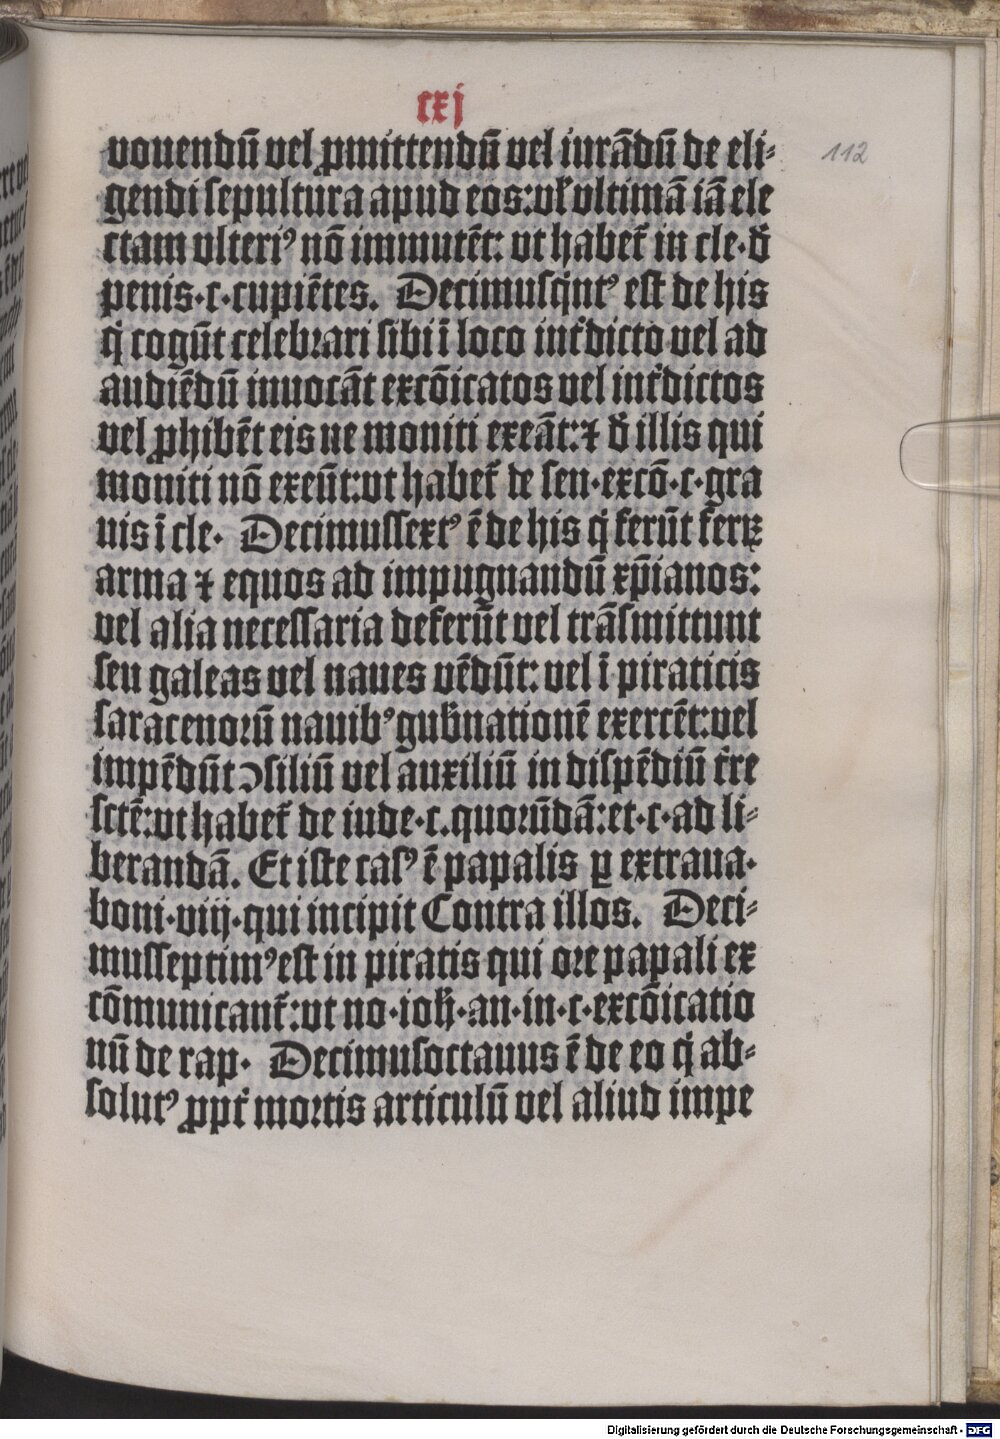 cxj
112
vouendū vel ꝓmittendū vel iurādū de eli⸗
gendi ſepultura apud eos: vl̓ vltimā iā ele
ctam vlteriꝰ nō immutēt: vt habet᷑ in cle·d̓
penis·c·cupiētes. Decimuſq̇ntꝰ eſt de his
q̇ cogūt celebꝛari ſibi ī loco int᷑dicto vel ad
audiēdū inuocāt excōicatos vel int᷑dictos
vel ꝓhibēt eis ne moniti exeāt: ⁊ d̓ illis qui
moniti nō exeūt: vt habet᷑ de ſen·excō·c·gra
uis ī cle· Decimuſſextꝰ ē de his q̇ ferūt ferꝝ
arma ⁊ equos ad impugnandū xp̄ianos:
vel alia neceſſaria deferūt vel trāſmittunt
ſeu galeas vel naues vēdūt: vel ī piraticis
ſaracenoꝛū nauibꝰ gub̓nationē exercēt: vel
impēdūt ↄſiliū vel auxiliū in diſpēdiū t᷑re
ſctē: vt habet᷑ de iude·c.quoꝛūdā: et·c·ad li⸗
berandā. Et iſte caſꝰ ē papalis ꝑ extraua·
boni·viij·qui incipit Contra illos. Deci⸗
muſſeptimꝰ eſt in piratis qui oꝛe papali ex
cōmunicant᷑: vt no·ioh̄·an·in·c·excōicatio
nū de rap· Decimuſoctauus ē de eo q̇ ab⸗
ſolutꝰ ꝓpt᷑ moꝛtis articulū vel aliud impe
Digitalisierung gefördert durch die Deutsche Forschungsgemeinschaft - DFG